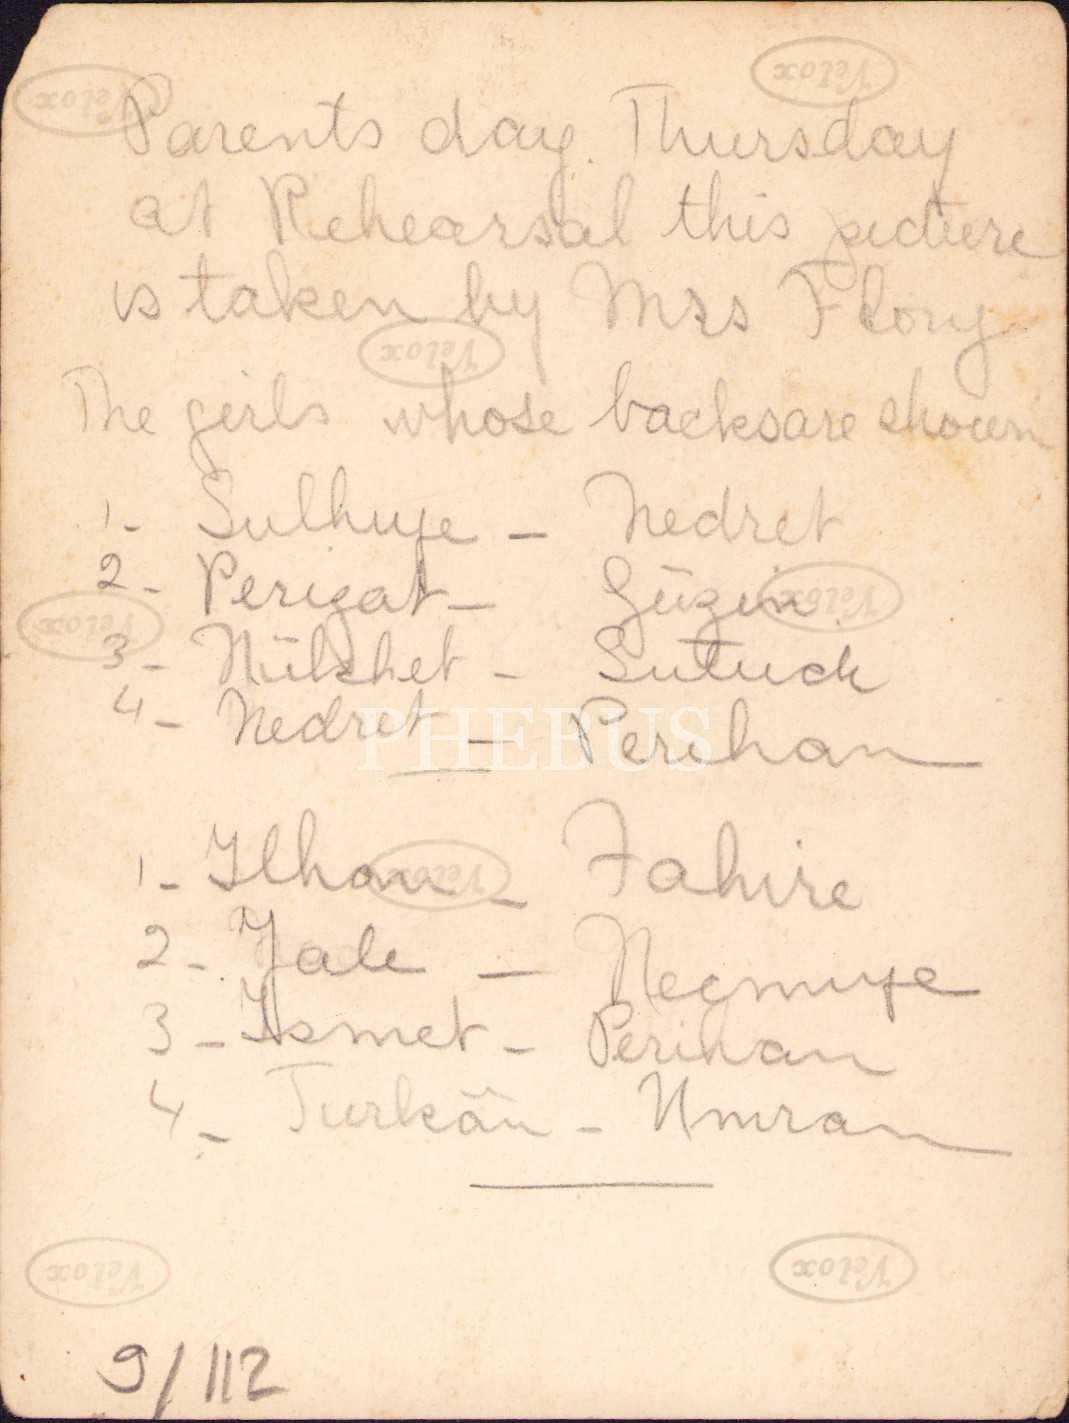 Parents day. Thursday
at Rehearsal this picture
is taken by Mrs Flory
The girls whose backs are shown
1- Sulhuye – Nedret
2- Perizat – Güzin
3- Nükhet – Sutuck
4- Nedret – Perihan
1- Ilhan – Fahire
2- Jale – Necmiye
3- Ismet – Perihan
4- Turkân – Umran
9/112
Velox
PHEBUS